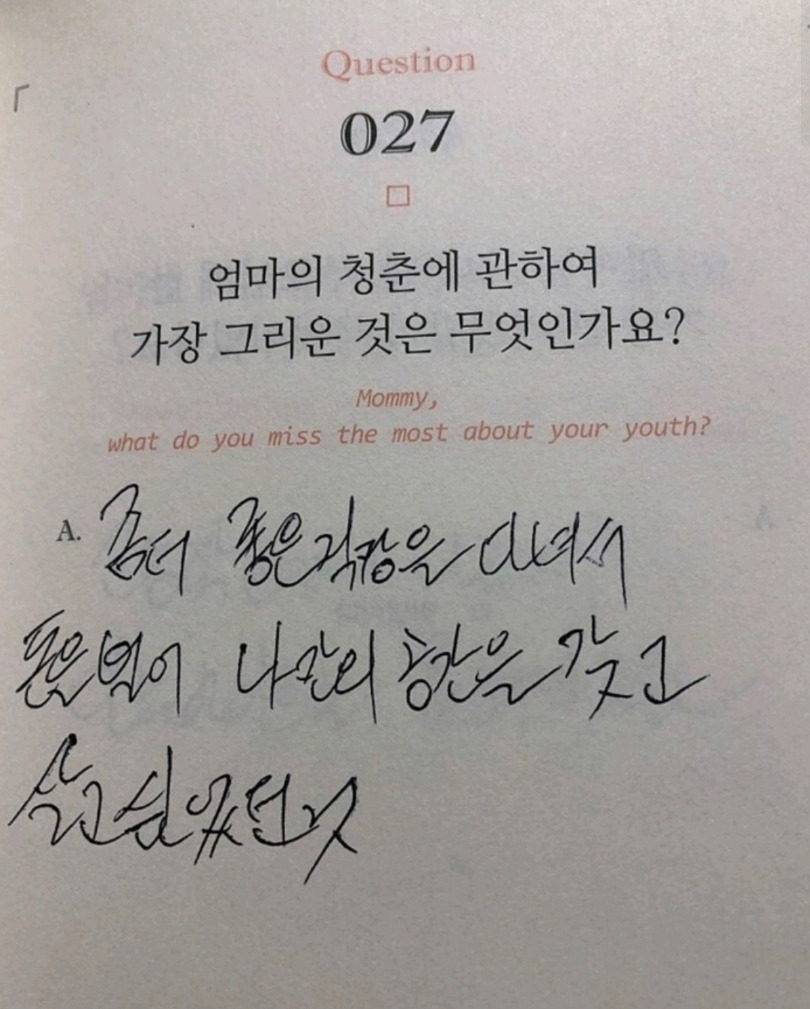 Question
027
엄마의 청춘에 관하여
가장 그리운 것은 무엇인가요?
Mommy,
what do you miss the most about your youth?
A. 좀더 좋은직장을 다녀서
돈을벌어 나만의 공간을 갖고
살고싶었던것